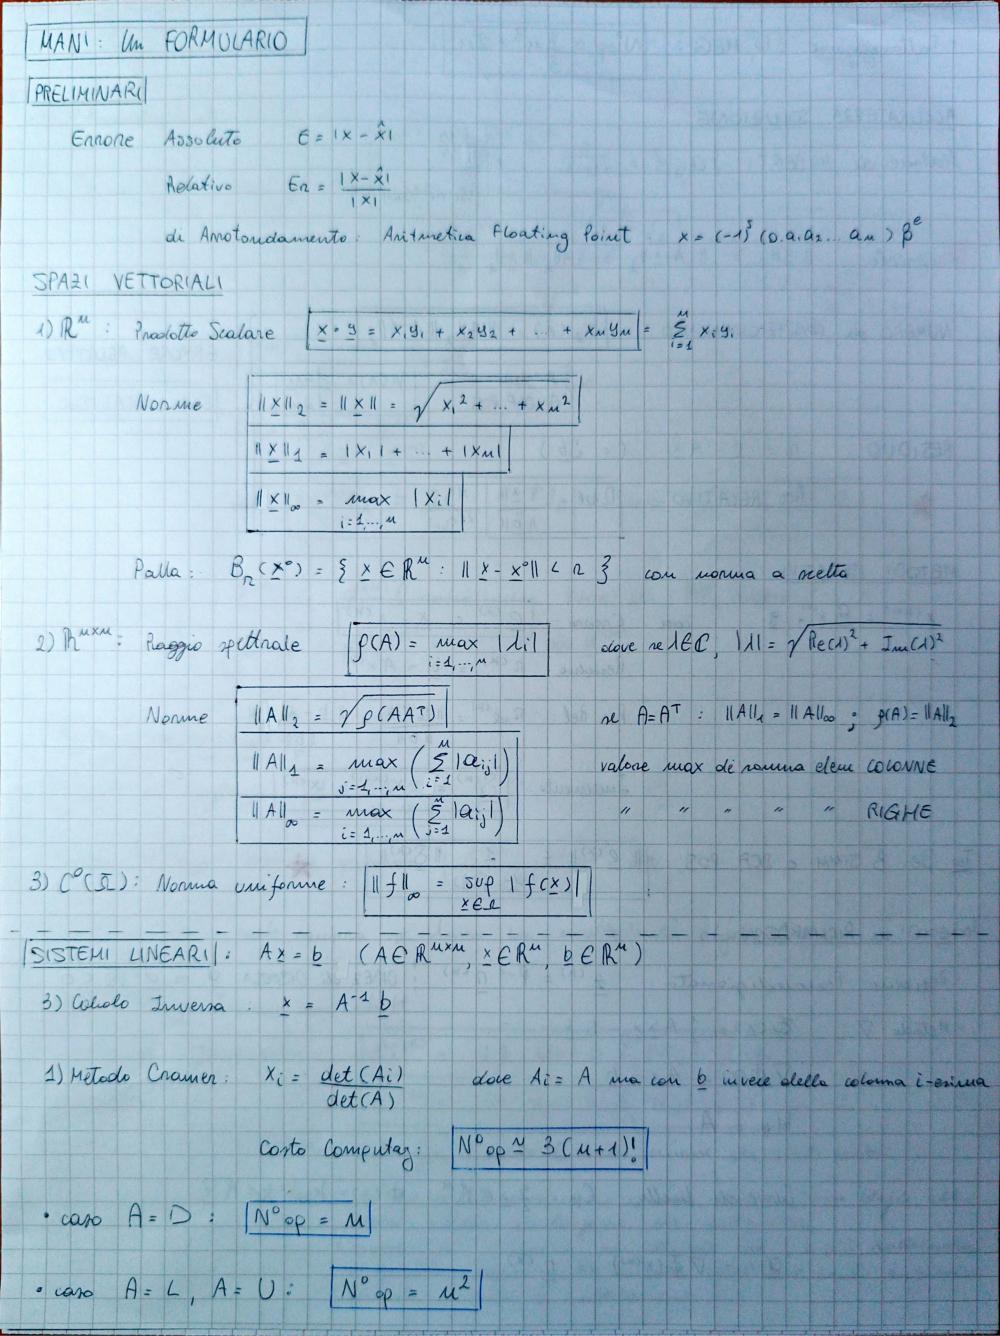 MANI: Un FORMULARIO
PRELIMINARI
Errore Assoluto E = |x - x̂|
Relativo Er = |x - x̂| / |x|
di Arrotondamento: Aritmetica Floating Point x = (-1)ˢ (0.a₁a₂... aₙ) βᵉ
SPAZI VETTORIALI
1) ℝⁿ : Prodotto Scalare x · y = x₁y₁ + x₂y₂ + ... + xₙyₙ = Σᵢ₌₁ⁿ xᵢyᵢ
Norme ||x||₂ = ||x|| = √(x₁² + ... + xₙ²)
||x||₁ = |x₁| + ... + |xₙ|
||x||∞ = max i=1,...,n |xᵢ|
Palla: Br(x⁰) = { x ∈ ℝⁿ : ||x - x⁰|| < r } con norma a scelta
2) ℝⁿˣⁿ : Raggio spettrale ρ(A) = max i=1,...,n |λᵢ| dove se λ∈ℂ, |λ| = √(Re(λ)² + Im(λ)²)
Norme ||A||₂ = √ρ(AAᵀ) se A=Aᵀ : ||A||₁ = ||A||∞ ; ρ(A) = ||A||₂
||A||₁ = max j=1,...,n (Σᵢ₌₁ⁿ |aᵢⱼ|) valore max di somma elem COLONNE
||A||∞ = max i=1,...,n (Σⱼ₌₁ⁿ |aᵢⱼ|) " " " " " RIGHE
3) C⁰(Ω̄): Norma uniforme : ||f||∞ = sup x∈Ω |f(x)|
SISTEMI LINEARI : Ax = b (A∈ℝⁿˣⁿ, x∈ℝⁿ, b∈ℝⁿ)
3) Calcolo Inversa : x = A⁻¹ b
1) Metodo Cramer: xᵢ = det(Aᵢ) / det(A) dove Aᵢ = A ma con b invece della colonna i-esima
Costo Computaz: N° op ≃ 3(n+1)!
• caso A = D : N° op = n
• caso A = L, A = U : N° op = n²